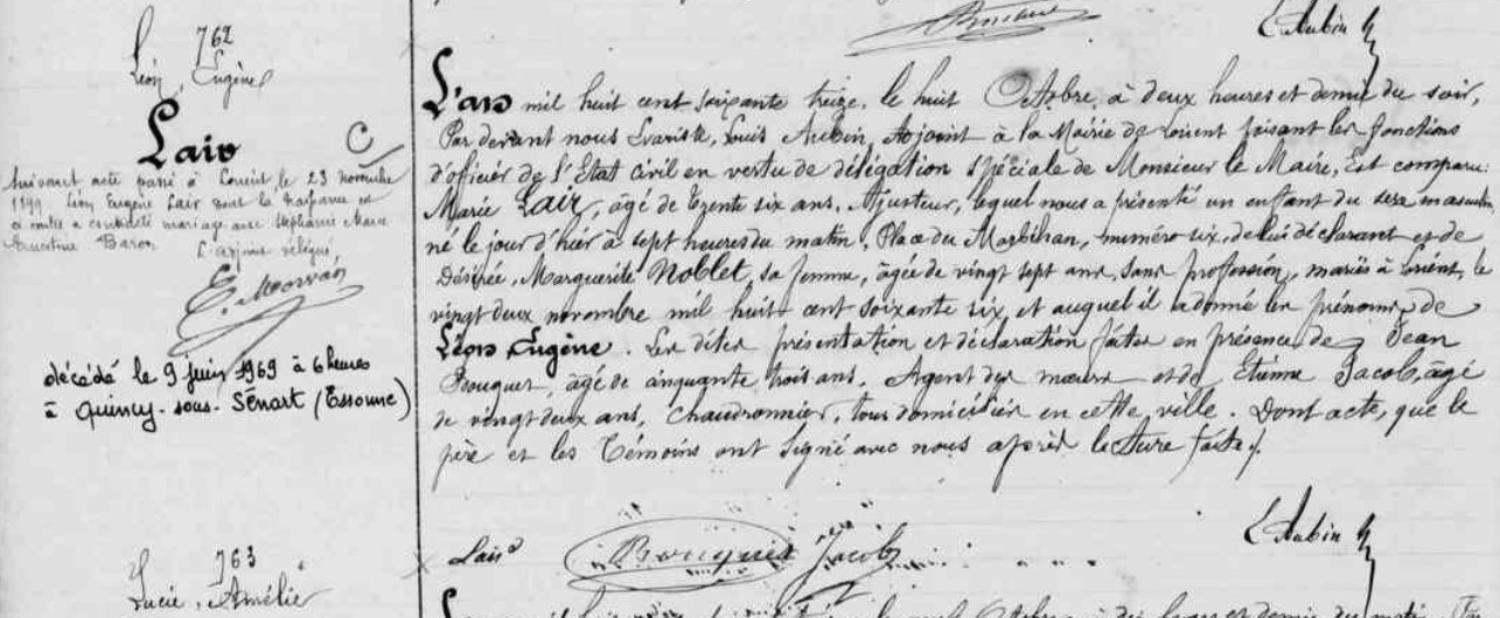 L. Aubin
762
Léon, Eugène
Lair
C
Suivant acte passé à Lorient, le 23 novembre
1899 Léon Eugène Lair dont la naissance est
ci contre a contracté mariage avec Stéphanie Marie
Ernestine Baron
L'adjoint délégué,
E. Morvan
décédé le 9 juin 1969 à 6 heures
à Quincy-sous-Sénart (Essonne)
L'an mil huit cent soixante treize, le huit Octobre, à deux heures et demie du soir,
Par devant nous Evariste, Louis Aubin, Adjoint à la Mairie de Lorient faisant les fonctions
d'officier de l'Etat civil en vertu de délégation spéciale de Monsieur le Maire, Est comparu:
Marie Lair, âgé de trente six ans, Ajusteur, lequel nous a présenté un enfant du sexe masculin,
né le jour d'hier à sept heures du matin, Place du Morbihan, numéro six, de lui déclarant et de
Désirée, Marguerite Noblet, sa femme, âgée de vingt sept ans, sans profession, mariés à Lorient, le
vingt deux novembre mil huit cent soixante six, et auquel il a donné les prénoms de
Léon Eugène. Les dites présentation et déclaration faites en présence de Jean
Bouquet, âgé de cinquante trois ans, Agent des mœurs et de Etienne Jacob, âgé
de vingt deux ans, Chaudronnier, tous domiciliés en cette ville. Dont acte, que le
père et les Témoins ont signé avec nous après lecture faite.
Lair Bouquet Jacob L. Aubin
763
Lucie, Amélie